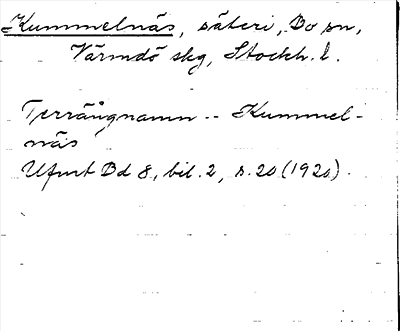 Kummelnäs, säteri, Bo sn,
Värmdö skg, Stockh. l.
Terrängnamn -- Kummel-
näs
Ufurt Bd 8, bil. 2, s. 20 (1920).